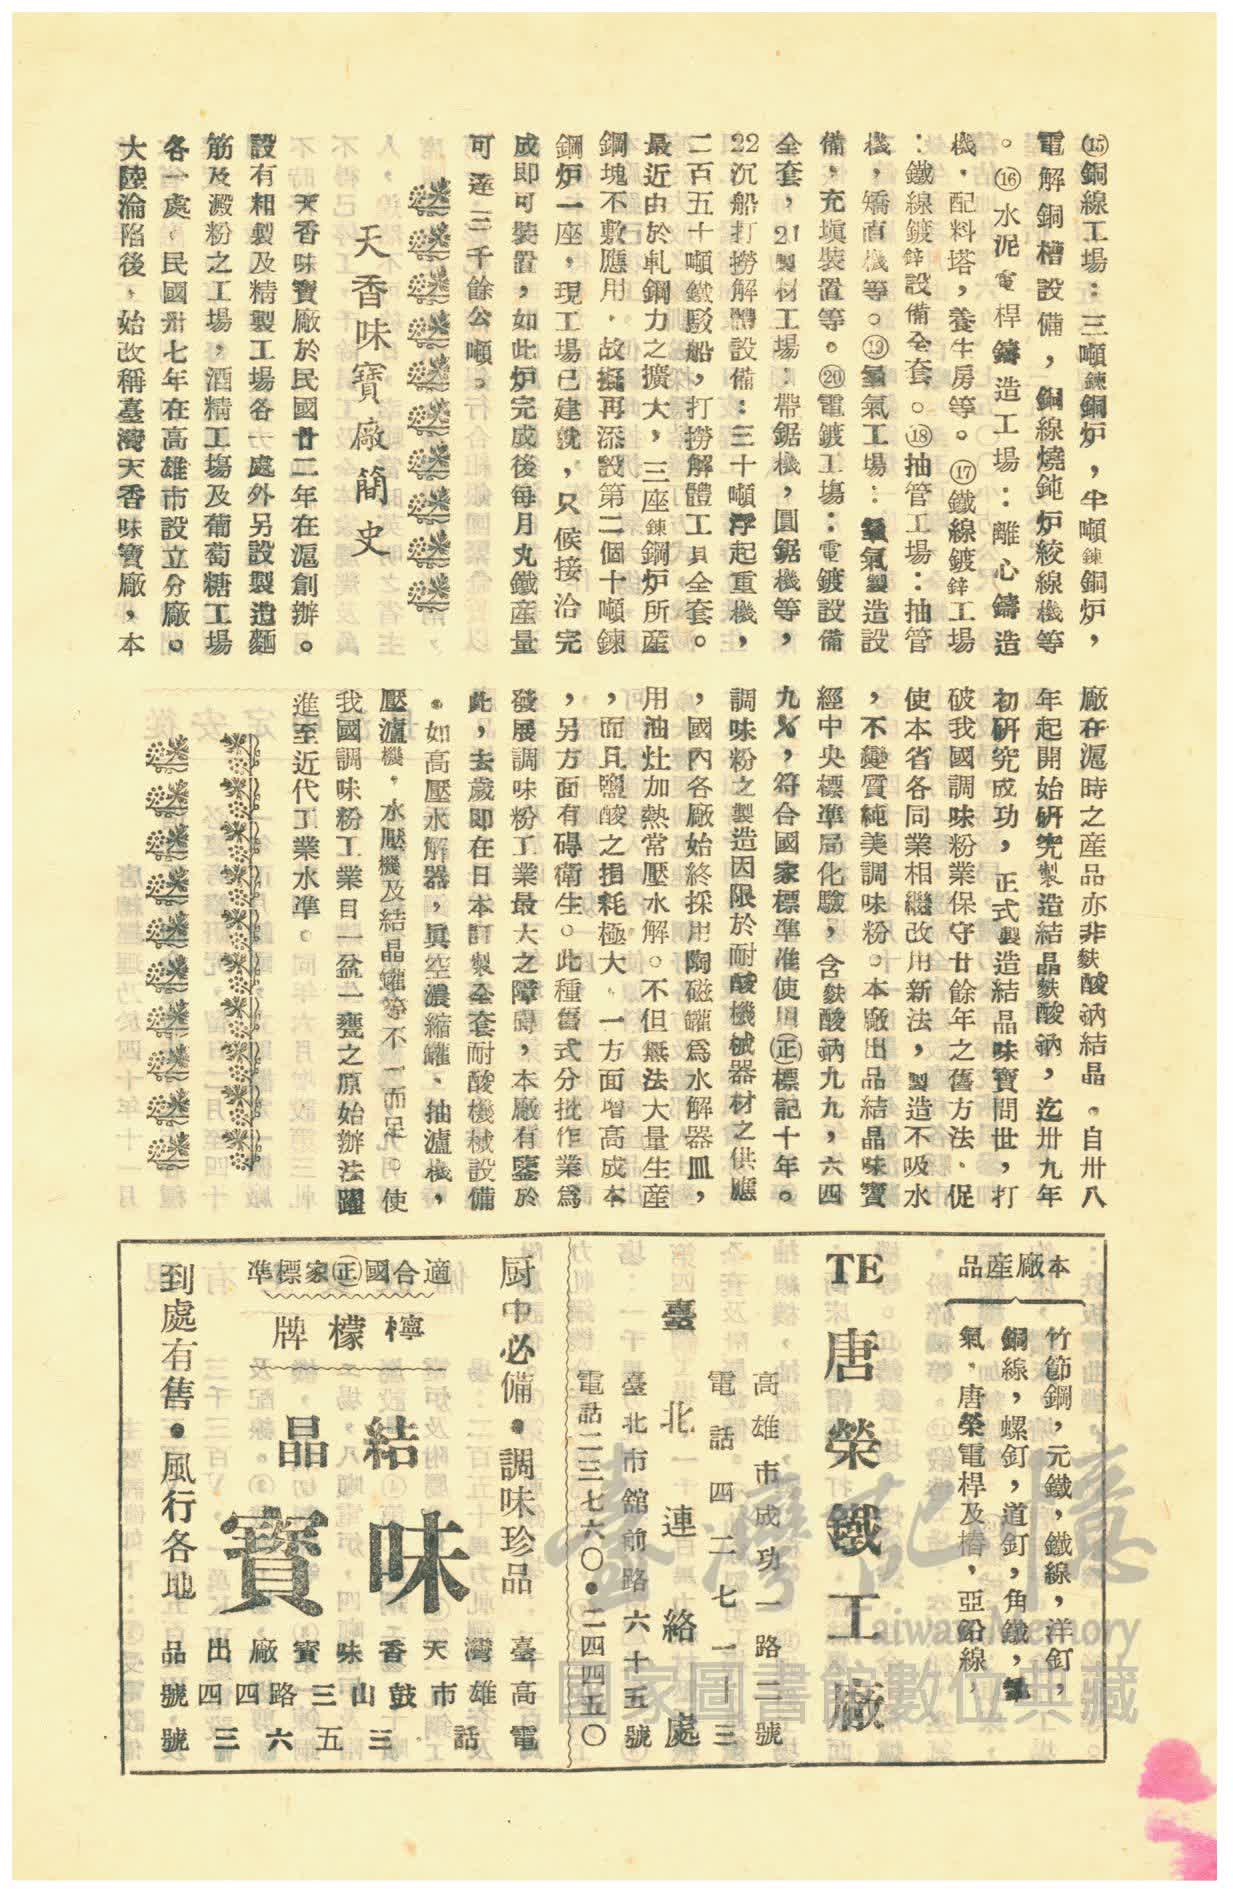 ⑮銅線工場：三噸鍊銅炉，半噸鍊銅炉，
電解銅槽設備，銅線燒鈍炉絞線機等
。⑯水泥電桿鑄造工場：離心鑄造
機，配料塔，養生房等。⑰鐵線鍍鋅工場
：鐵線鍍鋅設備全套。⑱抽管工場：抽管
機，矯直機等。⑲氧氣工場：氧氣製造設
備，充塡裝置等。⑳電鍍工塲：電鍍設備
全套，21製材工場：帶鋸機，圓鋸機等，
22沉船打撈解體設備：三十噸浮起重機，
二百五十噸鐵駁船，打撈解體工具全套。
最近由於軋鋼力之擴大，三座鍊鋼炉所産
鋼塊不敷應用，故擬再添設第二個十噸鍊
鋼炉一座，現工場已建就，只候接洽完
成卽可裝置，如此炉完成後每月丸鐵産量
可達三千餘公噸。
天香味寶廠簡史
天香味寶廠於民國廿二年在滬創辦。
設有粗製及精製工場各一處外另設製造麵
筋及澱粉之工場，酒精工塲及葡萄糖工場
各一處，民國卅七年在高雄市設立分廠。
大陸淪陷後，始改稱臺灣天香味寶廠，本
廠在滬時之産品亦非麩酸鈉結晶。自卅八
年起開始硏究製造結晶麩酸鈉，迄卅九年
初硏究成功，正式製造結晶味寶問世，打
破我國調味粉業保守廿餘年之舊方法，促
使本省各同業相繼改用新法，製造不吸水
，不變質純美調味粉。本廠出品結晶味寶
經中央標準局化驗，含麩酸鈉九九，六四
九％，符合國家標準准使用㊣標記十年。
調味粉之製造因限於耐酸機械器材之供應
，國內各廠始終採用陶磁罐爲水解器皿，
用油灶加熱常壓水解。不但無法大量生産
，而且鹽酸之損耗極大，一方面增高成本
，另方面有碍衞生。此種舊式分批作業爲
發展調味粉工業最大之障碍，本廠有鑒於
此，去歲卽在日本訂製全套耐酸機械設備
。如高壓水解器，眞空濃縮罐、抽濾機，
壓濾機，水壓機及結晶罐等不一而足。使
我國調味粉工業目一盆一甕之原始辦法躍
進至近代工業水準。
本廠産品
竹節鋼，元鐵，鐵線，洋釘，
銅線，螺釘，道釘，角鐵，氧
氣，唐榮電桿及樁，亞鉛線，
TE 唐榮鐵工廠
高雄市成功一路二號
電話四二七一—三
臺北連絡處
臺北市舘前路六十五號
電話二三七六〇•二四四五〇
厨中必備•調味珍品
適合國㊣家標準
檸檬牌
結晶
味寶
到處有售•風行各地
臺灣天香味寶廠出品
高雄市鼓山三路四四號
電話三五六三號
臺灣記憶
Taiwan Memory
國家圖書館數位典藏